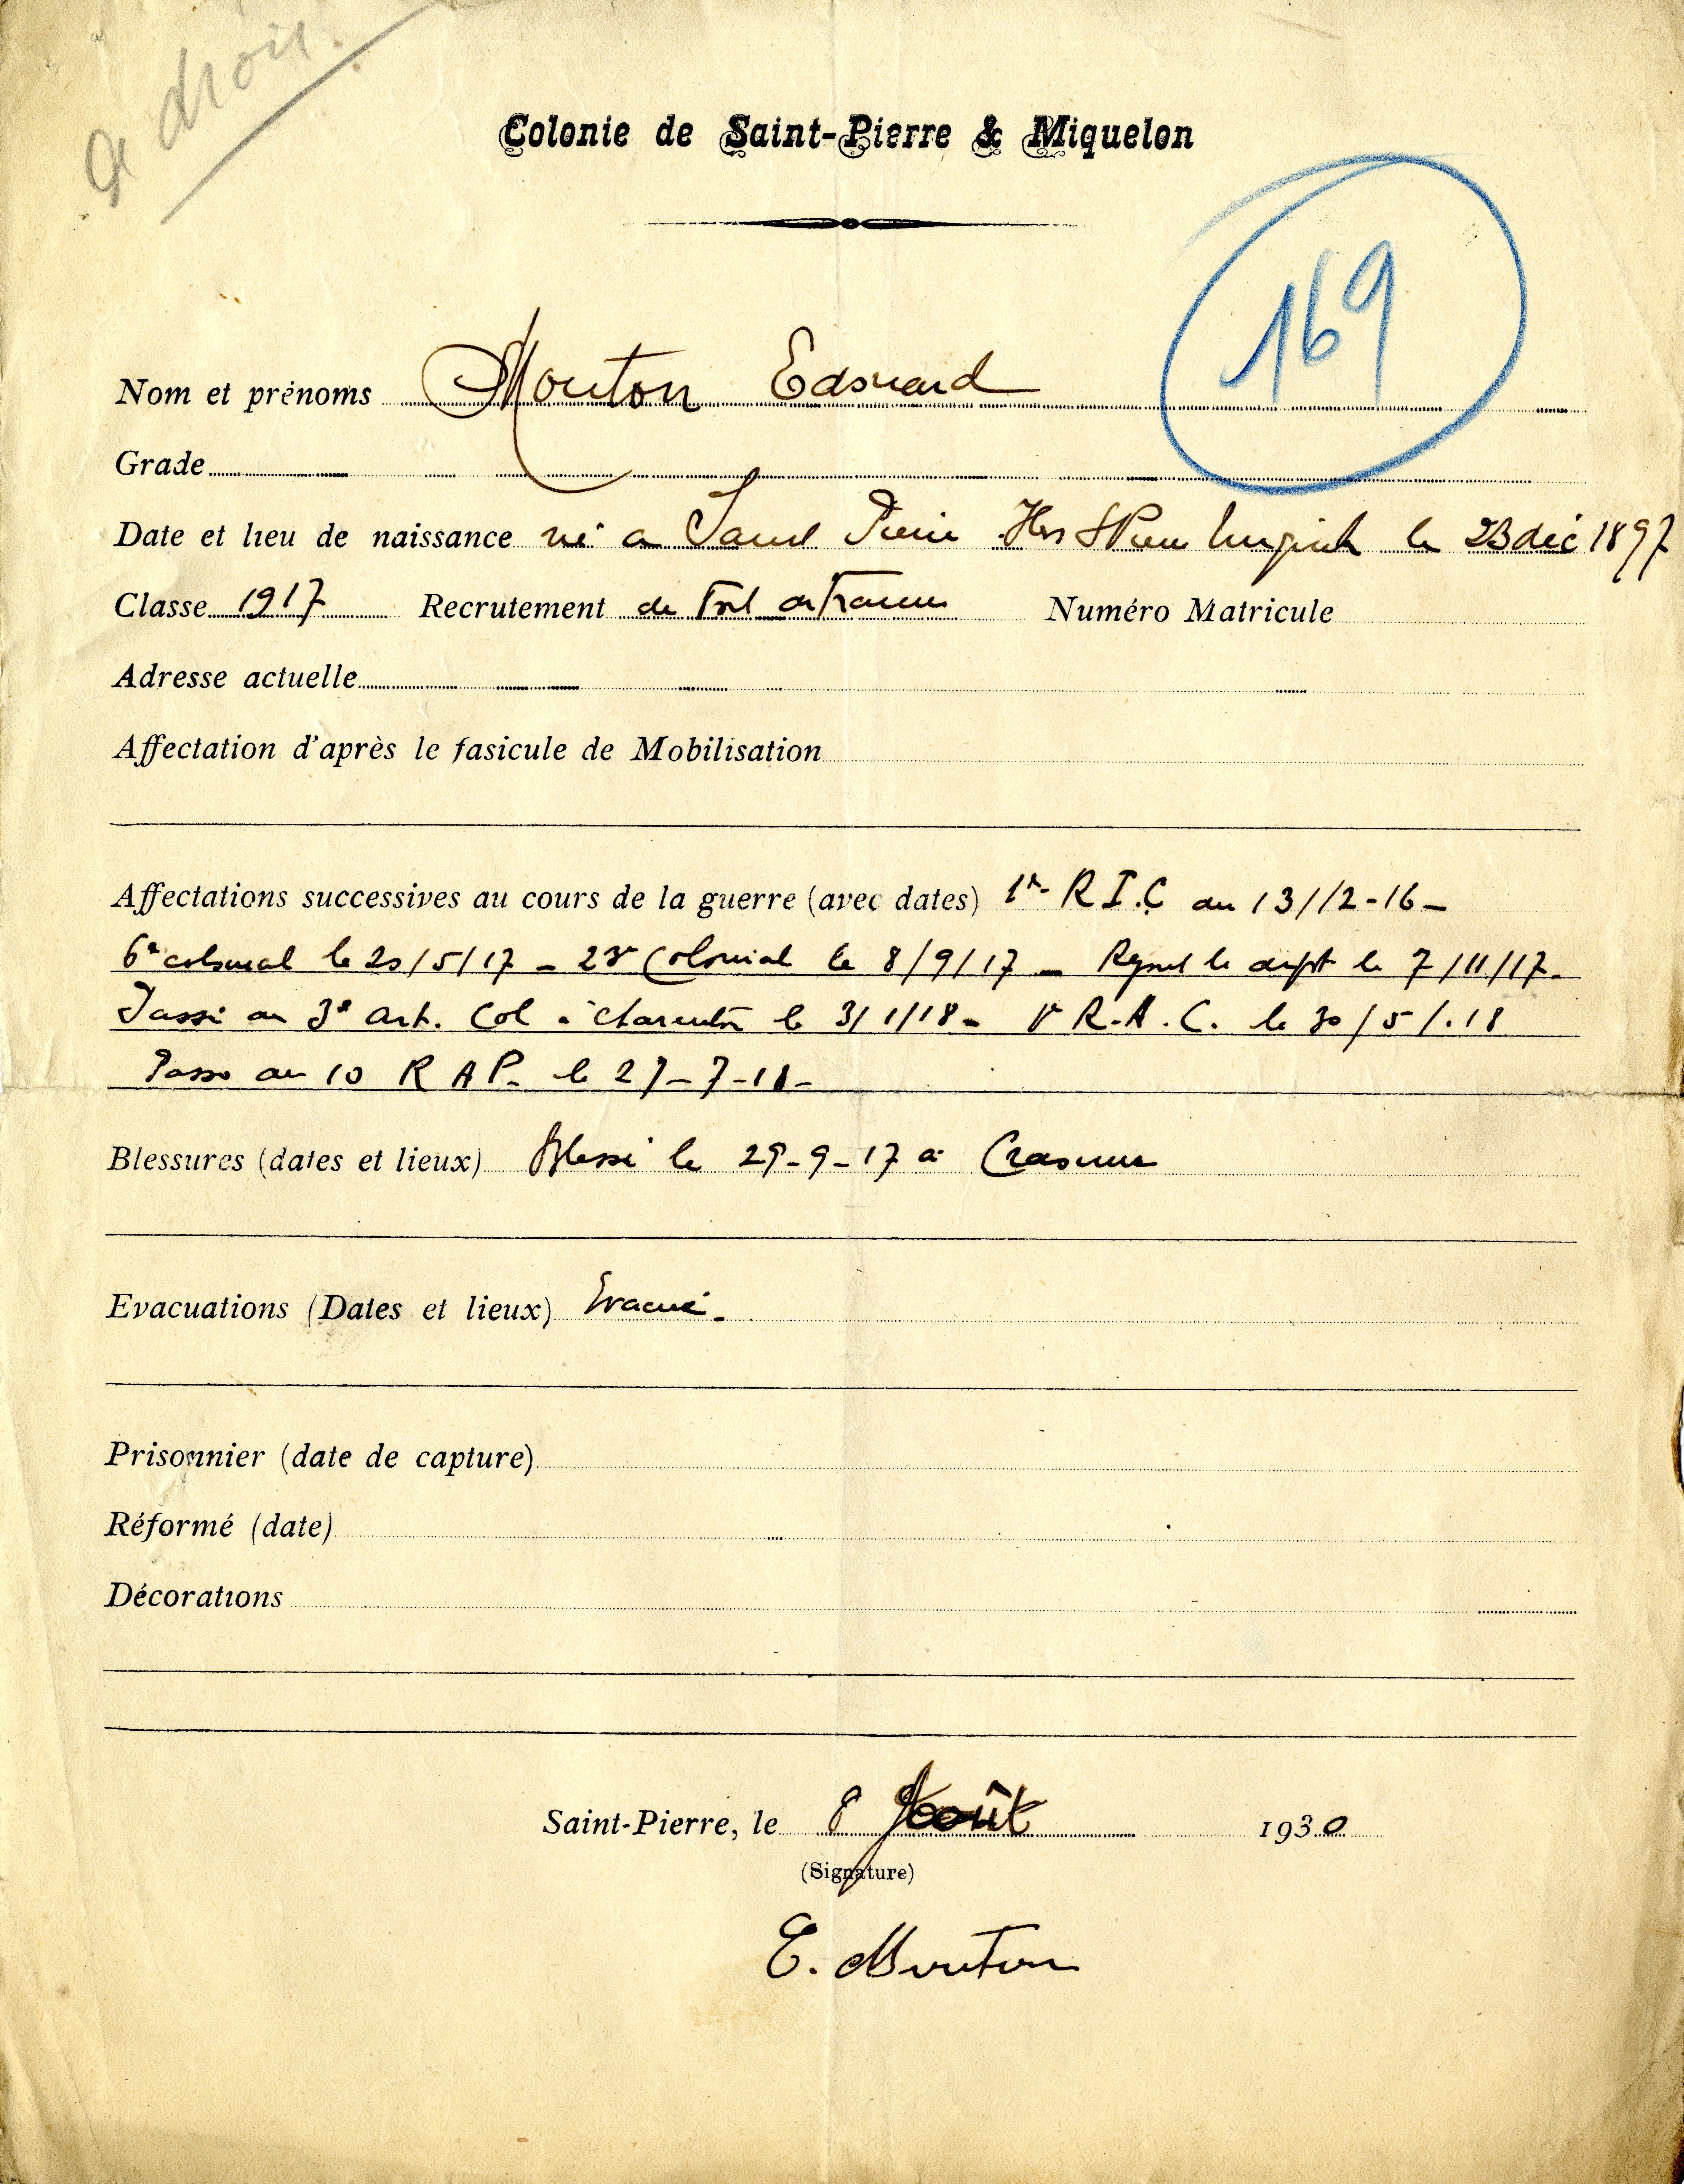 a droit.
Colonie de Saint-Pierre & Miquelon
169
Nom et prénoms Mouton Edouard
Grade
Date et lieu de naissance né a Saint Pierre le 23 déc 1897
Classe 1917 Recrutement de Fort de France Numéro Matricule
Adresse actuelle
Affectation d'après le fasicule de Mobilisation
Affectations successives au cours de la guerre (avec dates) 1er R I.C au 13/12-16 -
6e colonial le 20/5/17 - 23e Colonial le 8/9/17 - Rejoint le dépôt le 7/11/17 -
Passé au 3e Art. Col à Charenton le 3/1/18 - 1er R.A.C. le 30/5/.18
Passé au 10 R A P. le 27-7-18 -
Blessures (dates et lieux) Blessé le 29-9-17 à Craonne
Evacuations (Dates et lieux) Evacué.
Prisonnier (date de capture)
Réformé (date)
Décorations
Saint-Pierre, le 8 Août 1930
(Signature)
E. Mouton